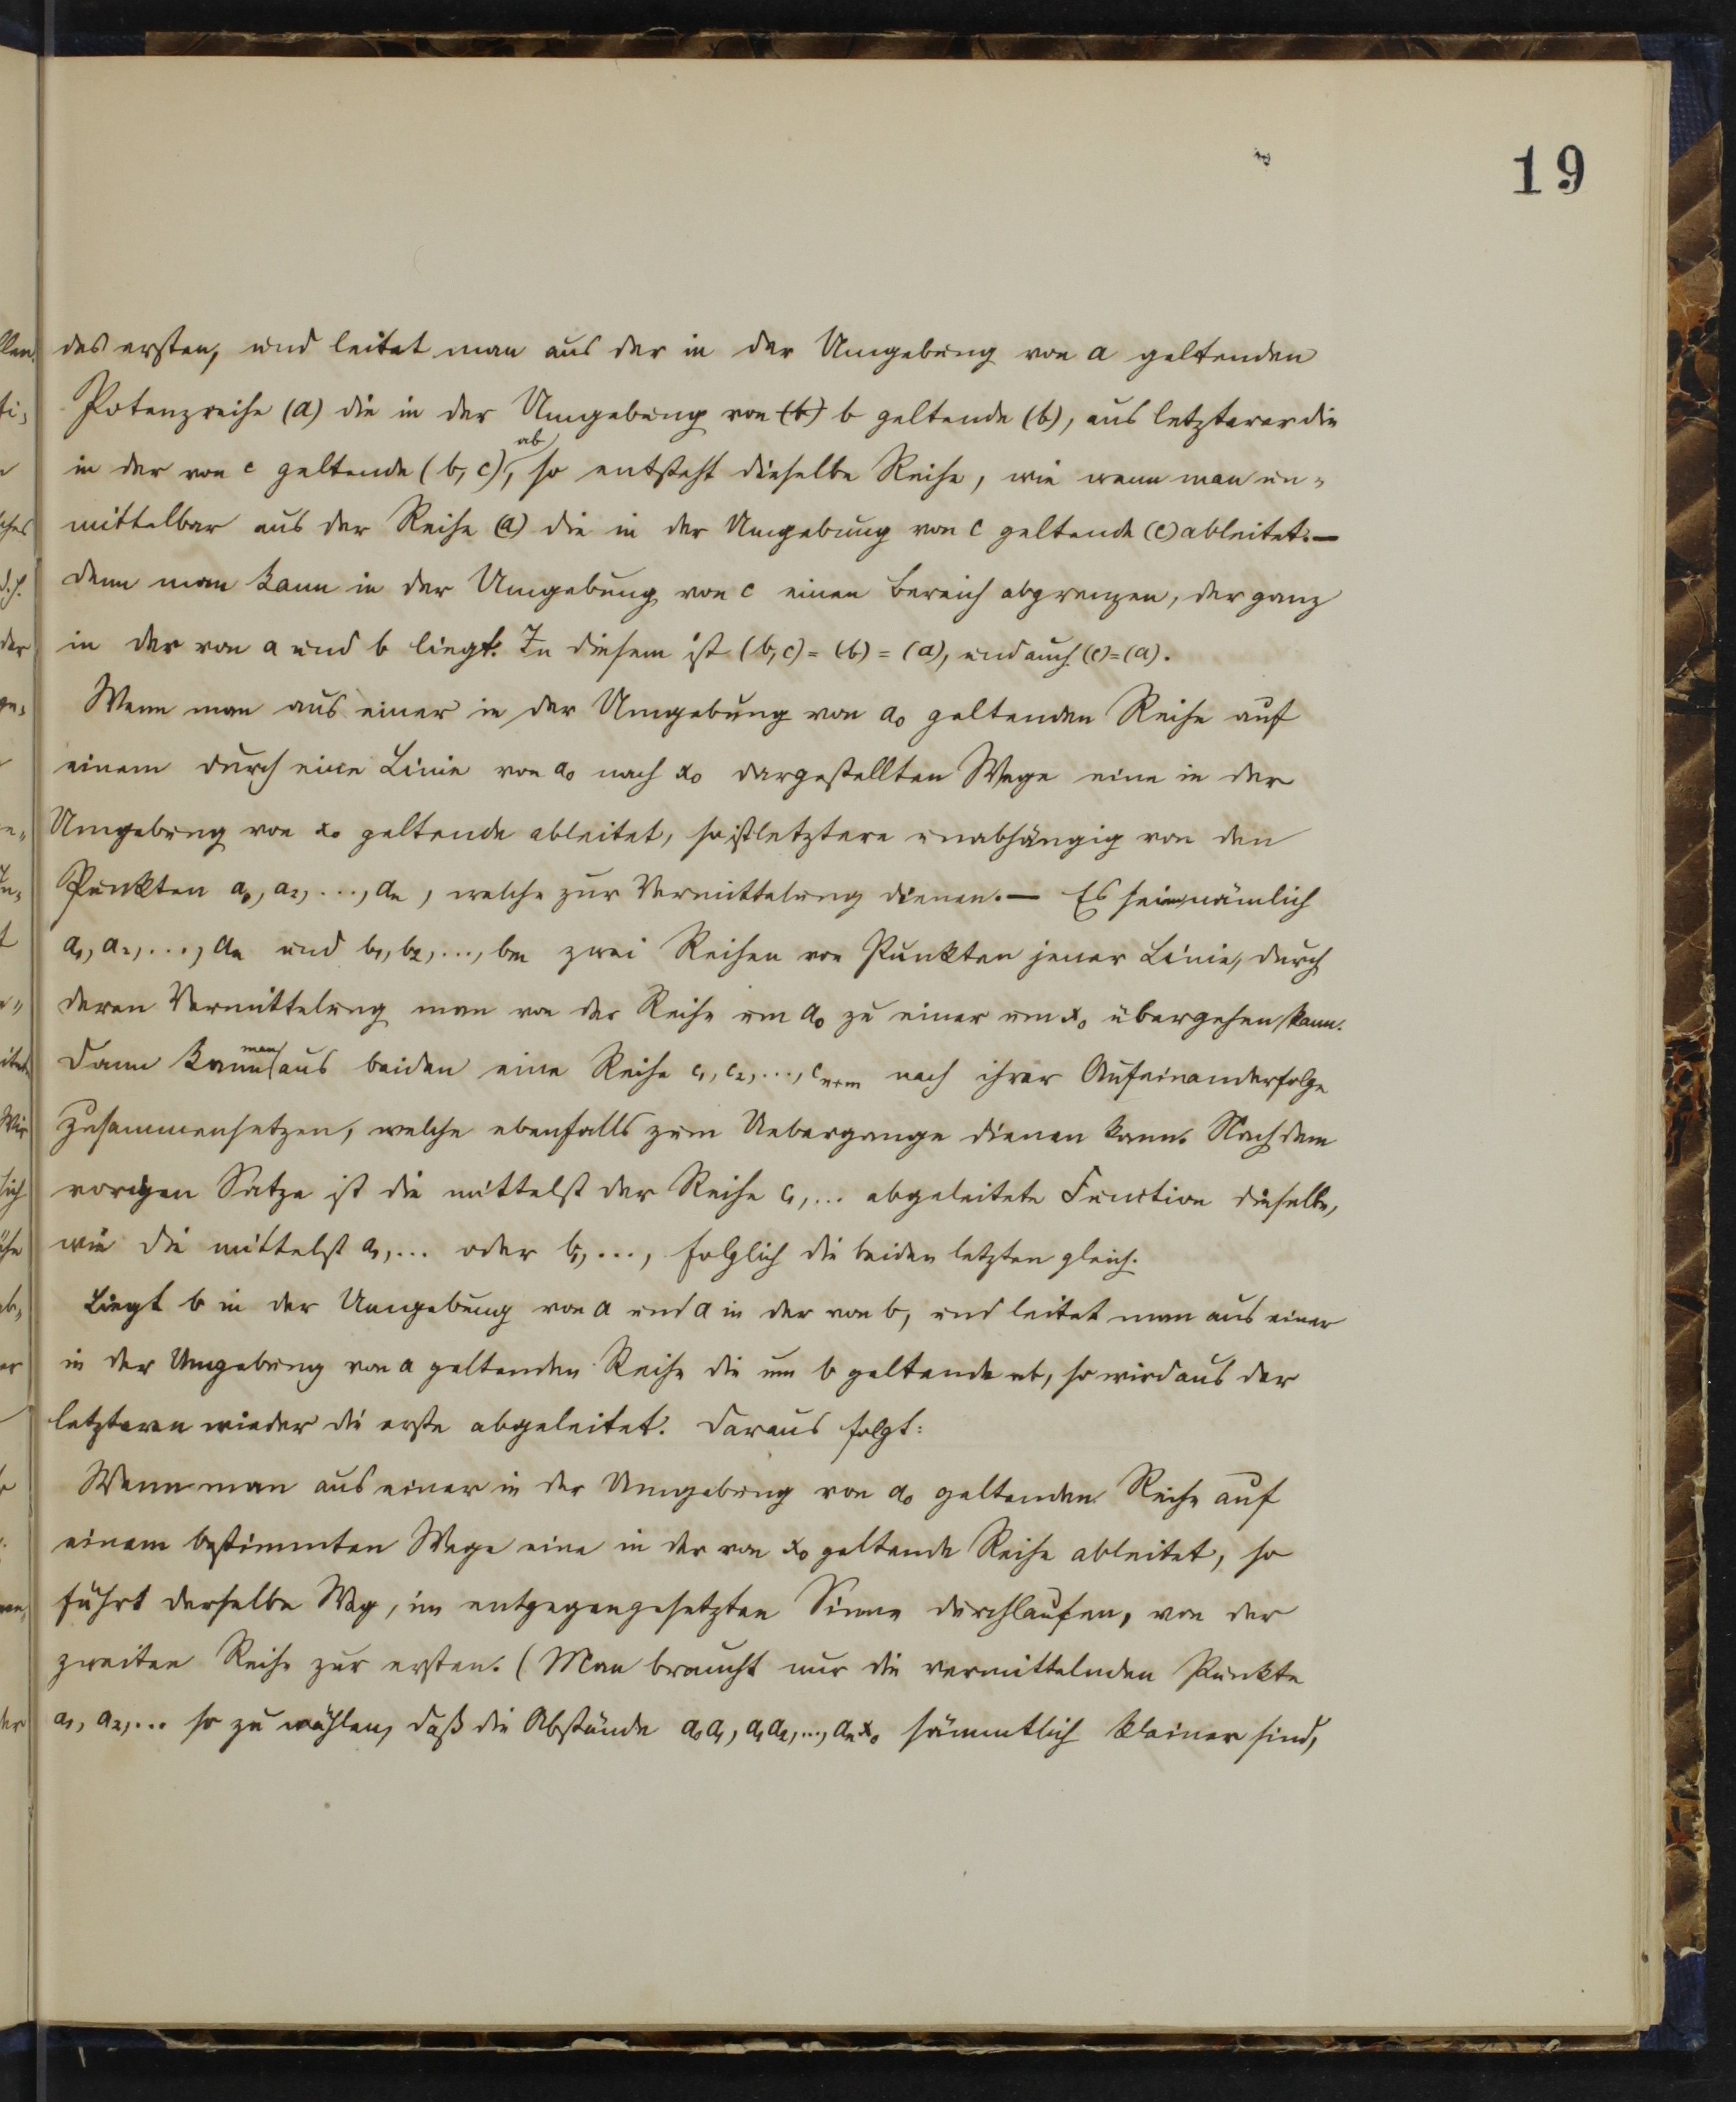 19
des ersten, und leitet man aus der in der Umgebung von a geltenden
Potenzreihe (a) die in der Umgebung von (b) b geltende (b), aus letzterer die
in der von c geltende (b, c) ab, so entsteht dieselbe Reihe, wie wenn man un=
mittelbar aus der Reihe (a) die in der Umgebung von c geltende (c) ableitet. —
denn man kann in der Umgebung von c einen Bereich abgrenzen, der ganz
in der von a und b liegt. In diesem ist (b, c) = (b) = (a), und auch (c) = (a).
Wenn man aus einer in der Umgebung von a₀ geltenden Reihe auf
einem durch eine Linie von a₀ nach x₀ dargestellten Wege eine in der
Umgebung von x₀ geltende ableitet, so ist letztere unabhängig von den
Punkten a₁, a₂, ..., aₙ, welche zur Vermittelung dienen. — Es seien nämlich
a₁, a₂, ..., aₙ und b₁, b₂, ..., bₘ zwei Reihen von Punkten jener Linie, durch
deren Vermittelung man von der Reihe um a₀ zu einer um x₀ übergehen kann.
Dann kann man aus beiden eine Reihe c₁, c₂, ..., cₙ₊ₘ nach ihrer Aufeinanderfolge
zusammensetzen, welche ebenfalls zum Uebergange dienen kann. Nach dem
vorigen Satze ist die mittelst der Reihe c₁, ... abgeleitete Function dieselbe,
wie die mittelst a₁, ... oder b₁, ..., folglich die beiden letzten gleich.
Liegt b in der Umgebung von a und a in der von b, und leitet man aus einer
in der Umgebung von a geltenden Reihe die um b geltende ab, so wird aus der
letzteren wieder die erste abgeleitet. Daraus folgt:
Wenn man aus einer in der Umgebung von a₀ geltenden Reihe auf
einem bestimmten Wege eine in der von x₀ geltende Reihe ableitet, so
führt derselbe Weg, im entgegengesetzten Sinne durchlaufen, von der
zweiten Reihe zur ersten. (Man braucht nur die vermittelnden Punkte
a₁, a₂, ... so zu wählen, daß die Abstände a₀a₁, a₁a₂, ..., aₙx₀ sämmtlich kleiner sind,